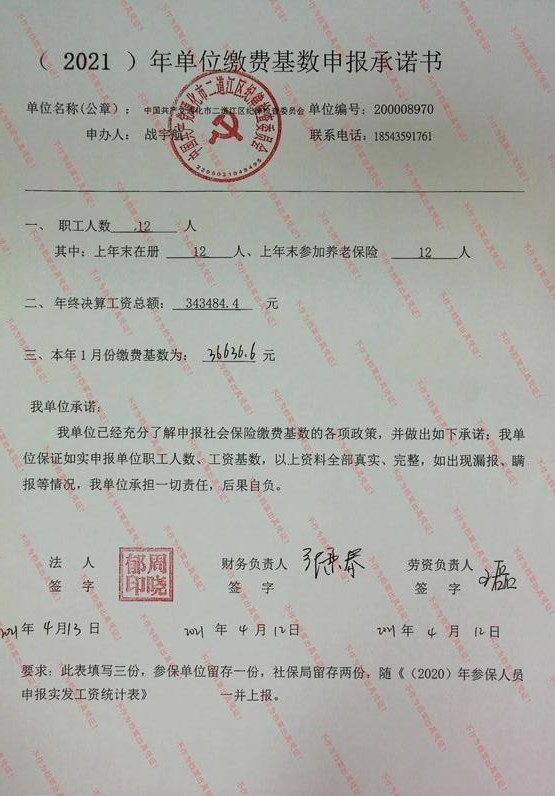 （ 2021 ）年单位缴费基数申报承诺书
单位名称(公章)： 中国共产党通化市二道江区纪律检查委员会 单位编号：200008970
申办人： 战宇 联系电话：18543591761
一、 职工人数 12 人
其中：上年末在册 12 人、上年末参加养老保险 12 人
二、年终决算工资总额： 343484.4 元
三、本年1月份缴费基数为： 36636.6 元
我单位承诺：
我单位已经充分了解申报社会保险缴费基数的各项政策，并做出如下承诺：我单
位保证如实申报单位职工人数、工资基数，以上资料全部真实、完整，如出现漏报、瞒
报等情况，我单位承担一切责任，后果自负。
法 人 财务负责人 劳资负责人
签 字 签 字 签 字
周晓郁印
2021年 4月13日 2021年 4月12日 2021年 4月12日
要求：此表填写三份，参保单位留存一份，社保局留存两份，随《（2020）年参保人员
申报实发工资统计表》 一并上报。